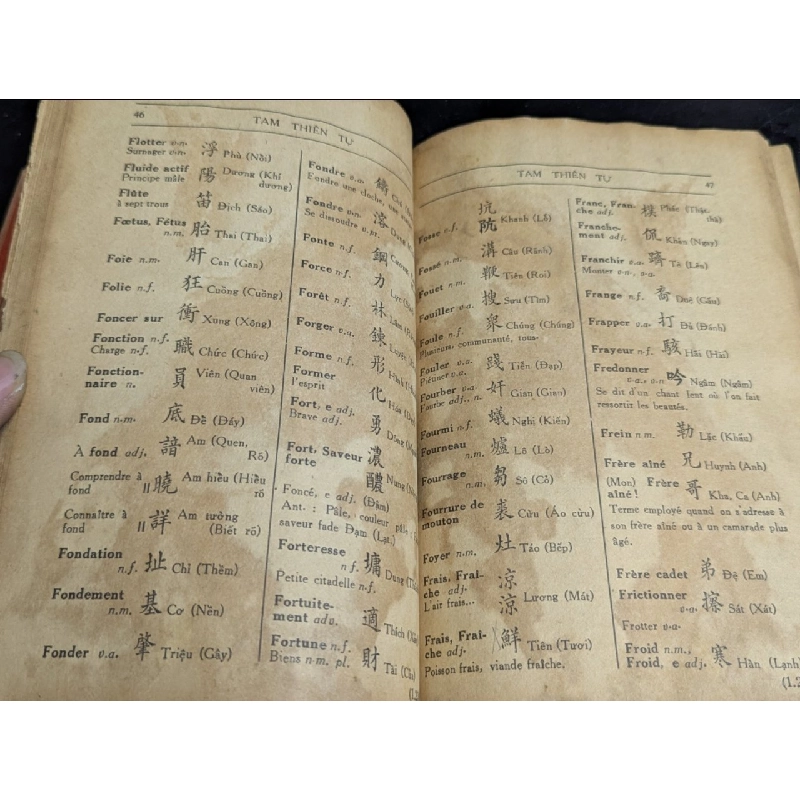 46
TAM THIÊN TỰ
Flotter v.n. 浮 Phù (Nổi)
Surnager v.n.
Fluide actif 陽 Dương (Khí dương)
Principe mâle
Flûte 笛 Địch (Sáo)
à sept trous
Fœtus, Fétus n.m. 胎 Thai (Thai)
Foie n.m. 肝 Can (Gan)
Folie n.f. 狂 Cuồng (Cuồng)
Foncer sur 衝 Xung (Xông)
Fonction n.f. 職 Chức (Chức)
Charge n.f.
Fonction-
naire n. 員 Viên (Quan viên)
Fond n.m. 底 Đề (Đáy)
À fond adj. 諳 Am (Quen, Rõ)
Comprendre à fond 〃曉 Am hiểu (Hiểu rõ
Connaître à fond 〃詳 Am tường (Biết rõ)
Fondation n.f. 址 Chỉ (Thềm)
Fondement n.m. 基 Cơ (Nền)
Fonder v.a. 肇 Triệu (Gây)
Fondre v.a. 鑄
Fondre une cloche, une
Fondre v.n. 溶
Se dissoudre v.pr.
Fonte n.f. 鋼
Force n.f. 力
Forêt n.f. 林
Forger v.a. 鍊
Forme n.f. 形
Former 化
l'esprit
Fort, e adj. 勇
Brave adj.
Fort, Saveur forte 濃
醲
Foncé, e adj. (Đậm)
Ant. : Pâle, couleur pâle
saveur fade Đạm (Lạt.)
Forteresse n.f. 墉
Petite citadelle n.f.
Fortuite-
ment adv. 適
Fortune n.f. 財 Tài
Biens n.m. pl.
TAM THIÊN TỰ
47
Fosse n.f. 坑 阬 Khanh (Lỗ)
Fossé n.m. 溝 Câu (Rãnh)
Fouet n.m. 鞭 Tiên (Roi)
Fouiller v.a. 搜 Sưu (Tìm)
Foule n.f. 眾 Chúng (Chúng)
Plusieurs, communauté, tous
Fouler v.a. 踐 Tiễn (Đạp)
Piétiner v.a.
Fourber v.a. 奸 Gian (Gian)
Fourbe adj., n.
Fourmi n.f. 蟻 Nghị (Kiến)
Fourneau n.m. 爐 Lô (Lò)
Fourrage n.m. 芻 Sô (Cỏ)
Fourrure de mouton 裘 Cừu (Áo cừu)
Foyer n.m. 灶 Táo (Bếp)
Frais, Fraî-
che adj. 涼 涼 Lương (Mát)
L'air frais...
Frais, Fraî-
che adj. 鮮 Tiên (Tươi)
Poisson frais, viande fraîche.
Franc, Fran-
che adj. 樸 Phác (Thật
Franche-
ment adj. 侃 Khản
Franchir v.a. 躋 Tê (Lên)
Monter v.a., v.n.
Frange n.f. 裔 Duệ (Gấu)
Frapper v.a. 打 Đả (Đánh)
Frayeur n.f. 駭 Hãi (Hãi)
Fredonner v.a., v.n. 吟 Ngâm (Ngâm)
Se dit d'un chant lent où l'on fait
ressortir les beautés.
Frein n.m. 勒 Lặc (Khấu)
Frère aîné 兄 Huynh (Anh)
(Mon) Frère aîné ! 哥 Kha, Ca (Anh)
Terme employé quand on s'adresse à
son frère aîné ou à un camarade plus
âgé.
Frère cadet 弟 Đệ (Em)
Frictionner v.a. 擦 Sát (Xát)
Frotter v.a.
Froid n.m.,
Froid, e adj. 寒 Hàn (Lạnh)